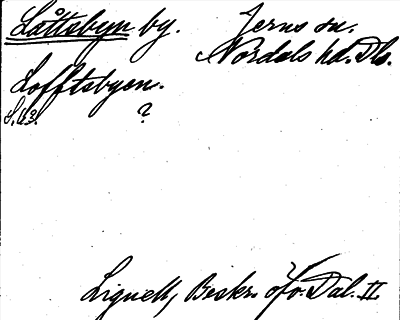 Låftsbyn by. Jerns sn.
Nordals hd. Dls.
Lofftsbyen.
S. 43. ?
Lignell, Beskr. öfv. Dal. II